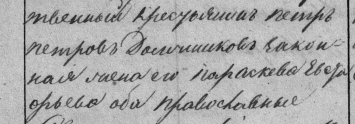 твенный крестьянинъ Петръ
Петровъ Долчишиковъ закон-
ная жена его Параскева Евгра-
орьева оба православные